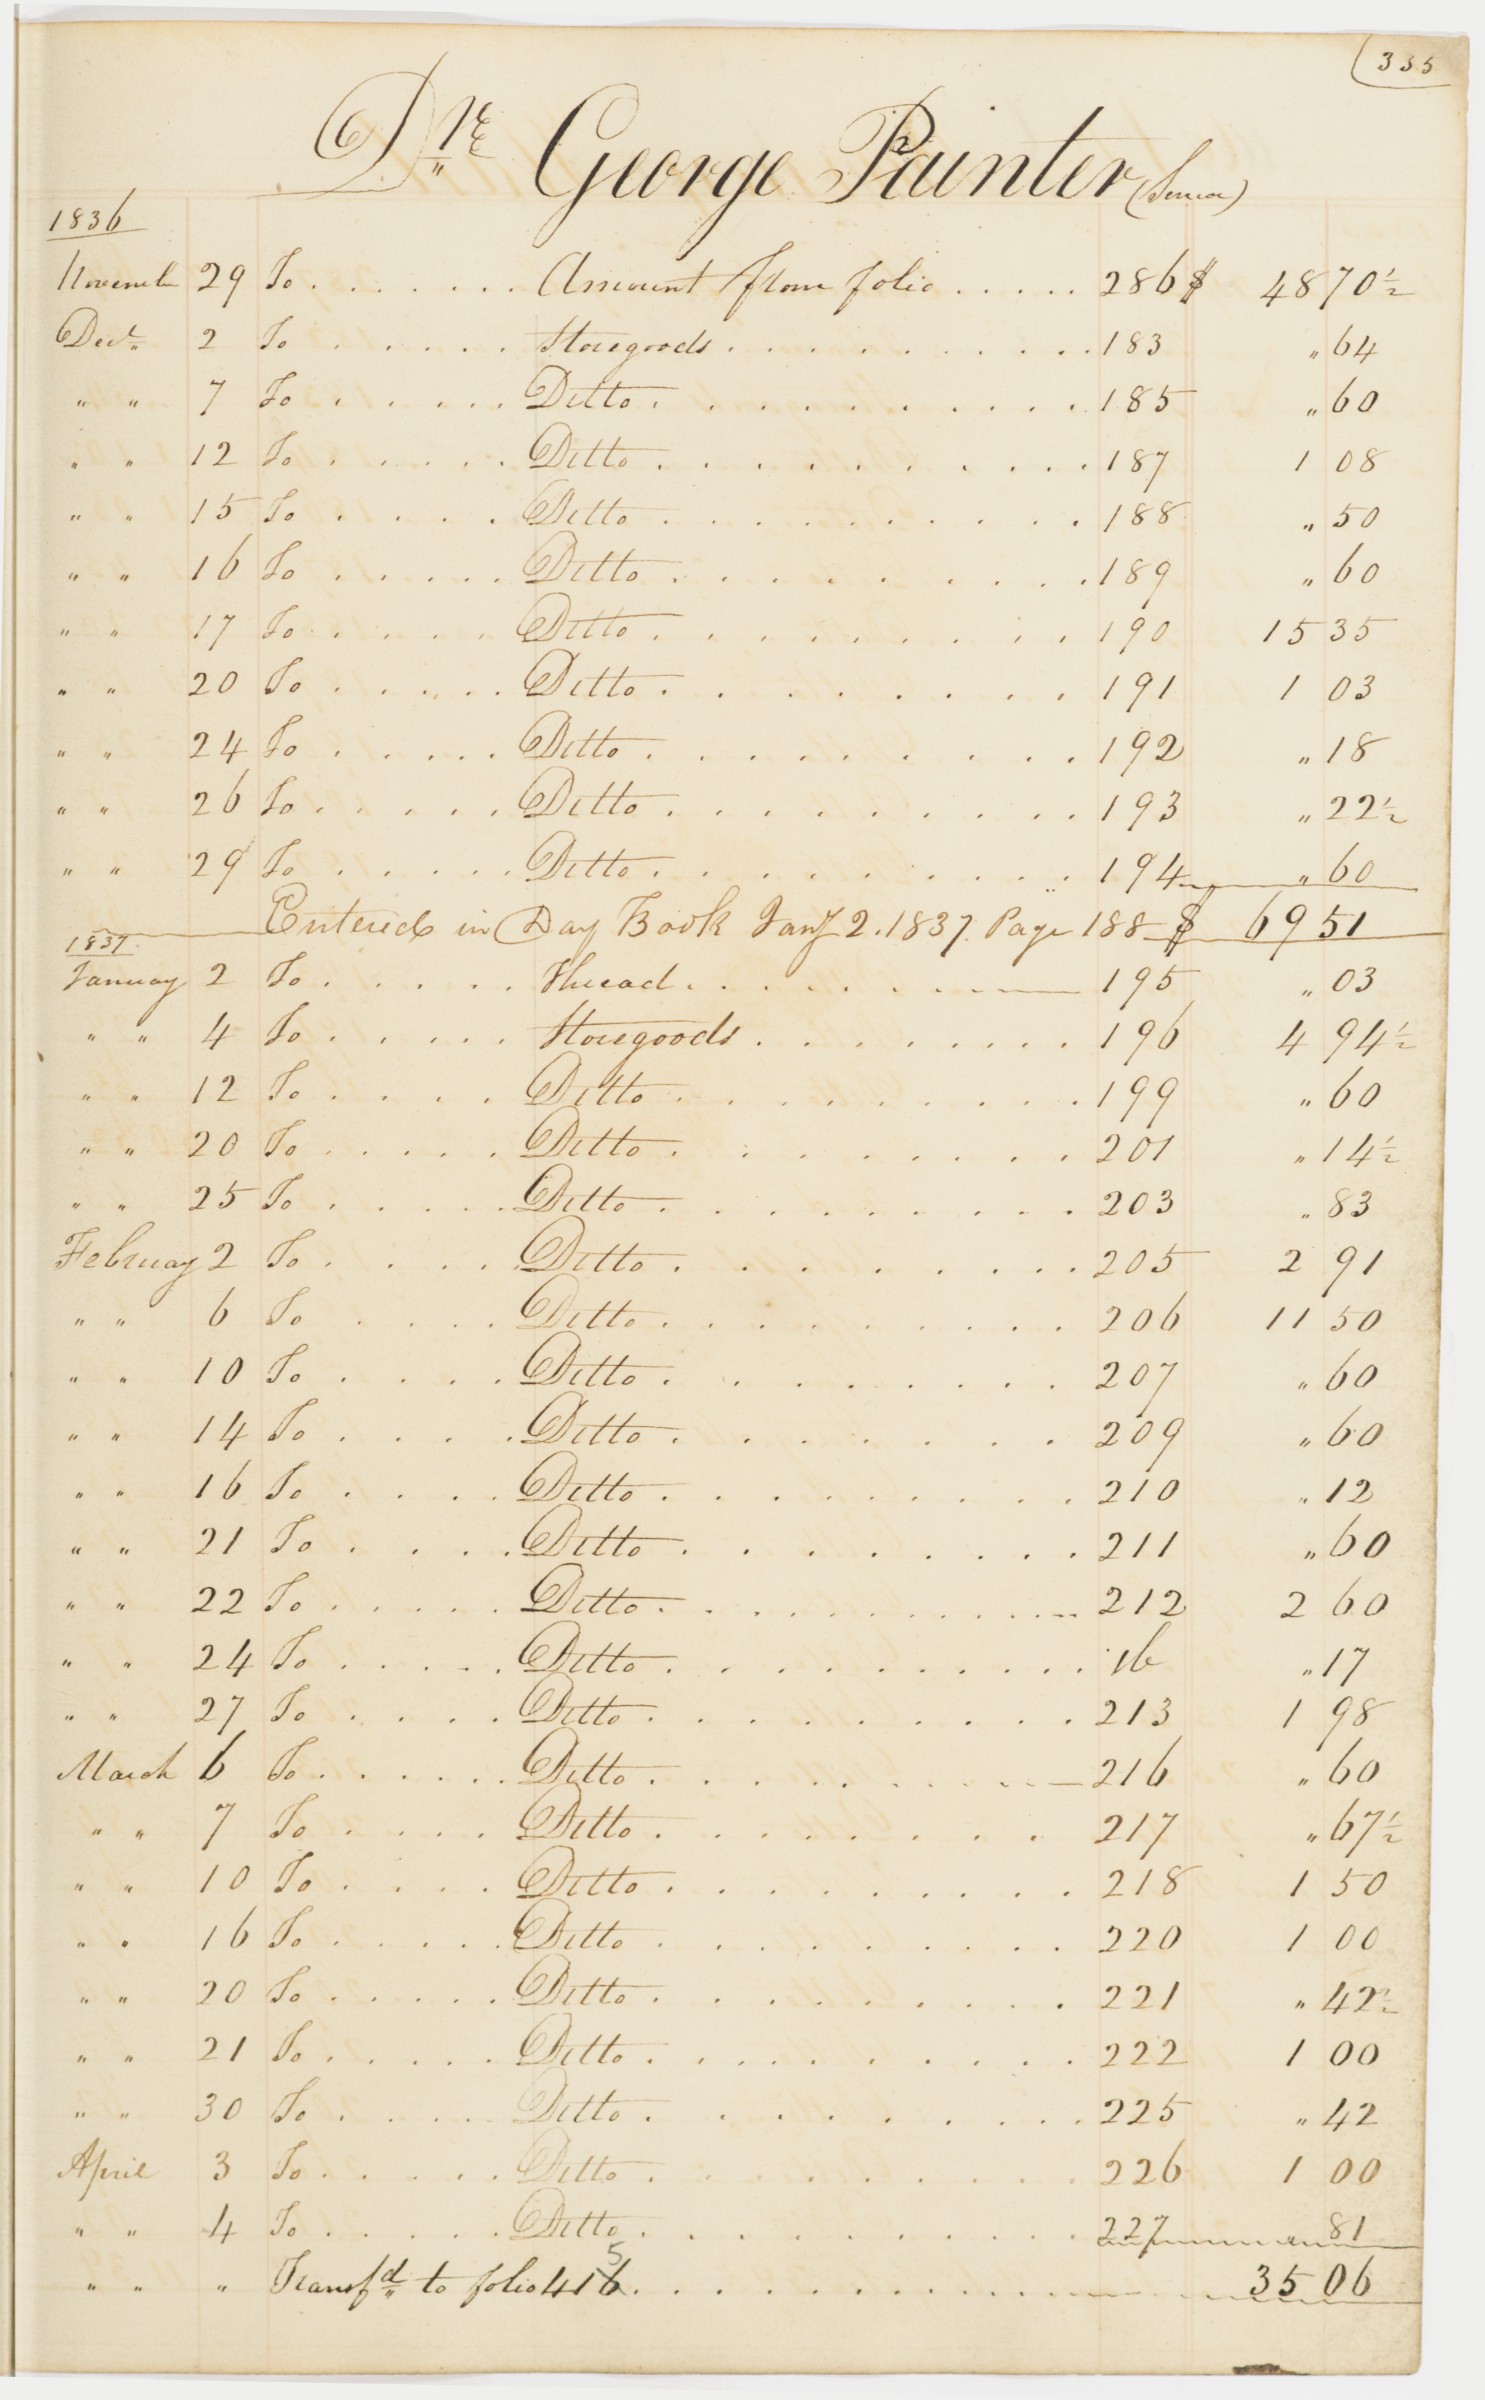 335
Dr. George Painter (Senior)
1836
November 29 To . . . . . . . Amount from folio . . . . . 286 $ 48 70 1/2
Decr. 2 To . . . . . . Storegoods . . . . . . . . . . 183 " 64
" " 7 To . . . . . Ditto . . . . . . . . . . 185 " 60
" " 12 To . . . . . Ditto . . . . . . . . . . 187 1 08
" " 15 To . . . . Ditto . . . . . . . . . . 188 " 50
" " 16 To . . . . . Ditto . . . . . . . . . 189 " 60
" " 17 To . . . . . Ditto . . . . . . . . . 190 15 35
" " 20 To . . . . . Ditto . . . . . . . . . 191 1 03
" " 24 To . . . . . Ditto . . . . . . . . . . 192 " 18
" " 26 To . . . . . Ditto . . . . . . . . . 193 " 22 1/2
" " 29 To . . . . . Ditto . . . . . . . . . 194 " 60
Entered in Day Book Jany 2. 1837. Page 188 $ 69 51
1837
January 2 To . . . . . Thread . . . . . . . . 195 " 03
" " 4 To . . . . . Storegoods . . . . . . . . 196 4 94 1/2
" " 12 To . . . . Ditto . . . . . . . . . 199 " 60
" " 20 To . . . . . Ditto . . . . . . . . 201 " 14 1/2
" " 25 To . . . . . Ditto . . . . . . . . . 203 " 83
Februay 2 To . . . . Ditto . . . . . . . . 205 2 91
" " 6 To . . . . Ditto . . . . . . . . . 206 11 50
" " 10 To . . . . Ditto . . . . . . . . 207 " 60
" " 14 To . . . . Ditto . . . . . . . 209 " 60
" " 16 To . . . . Ditto . . . . . . . . . 210 " 12
" " 21 To . . . . Ditto . . . . . . . . 211 " 60
" " 22 To . . . . . Ditto . . . . . . . . . . 212 2 60
" " 24 To . . . . . Ditto . . . . . . . . . . ib " 17
" " 27 To . . . . Ditto . . . . . . . . . 213 1 98
March 6 To . . . . . . Ditto . . . . . . . . 216 " 60
" " 7 To . . . . Ditto . . . . . . . . 217 " 67 1/2
" " 10 To . . . . Ditto . . . . . . . . . 218 1 50
" " 16 To . . . . . Ditto . . . . . . . . . 220 1 00
" " 20 To . . . . . Ditto . . . . . . . . . 221 " 42 1/2
" " 21 To . . . . . Ditto . . . . . . . . . . 222 1 00
" " 30 To . . . . Ditto . . . . . . . . . 225 " 42
April 3 To . . . . . Ditto . . . . . . . . . 226 1 00
" " 4 To . . . . . Ditto . . . . . . . . . . 227 " 81
" " " Transfd. to folio 4165 . . . . . . . . . . 35 06